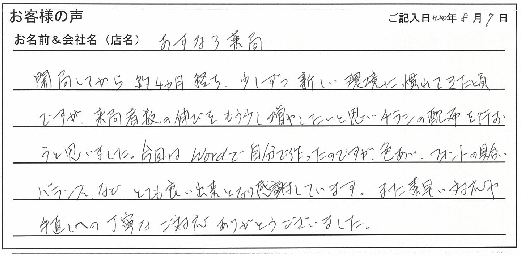 お客様の声
ご記入日 年 8月 9日
お名前&会社名(店名) あすなろ薬局
開局してから 約4ヵ月 経ち、少しずつ 新しい 環境に 慣れてきた頃
ですが、来局者数の伸びを もう少し 増やしたいと思い チラシの配布を行お
うと思いました。今回は Wordで自分で作ったのですが、色あい、フォントの具合、
バランス など とても良い出来となり感謝しています。また 素早い対応や
手直しへの丁寧な ご対応 ありがとうございました。